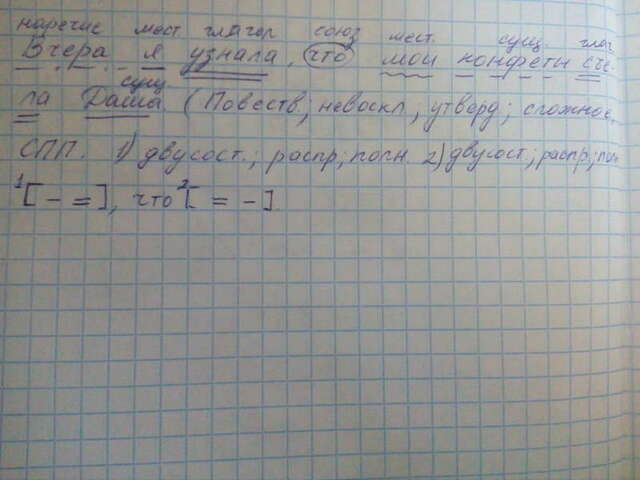 наречие мест. глагол союз мест. сущ. глаг
Вчера я узнала, что мои конфеты съе-
сущ.
ла Даша (Повеств; невоскл, утверд; сложное,
СПП. 1) двусост.; распр; полн. 2) двусост; распр; полн
1[ - = ], что 2[ = - ]